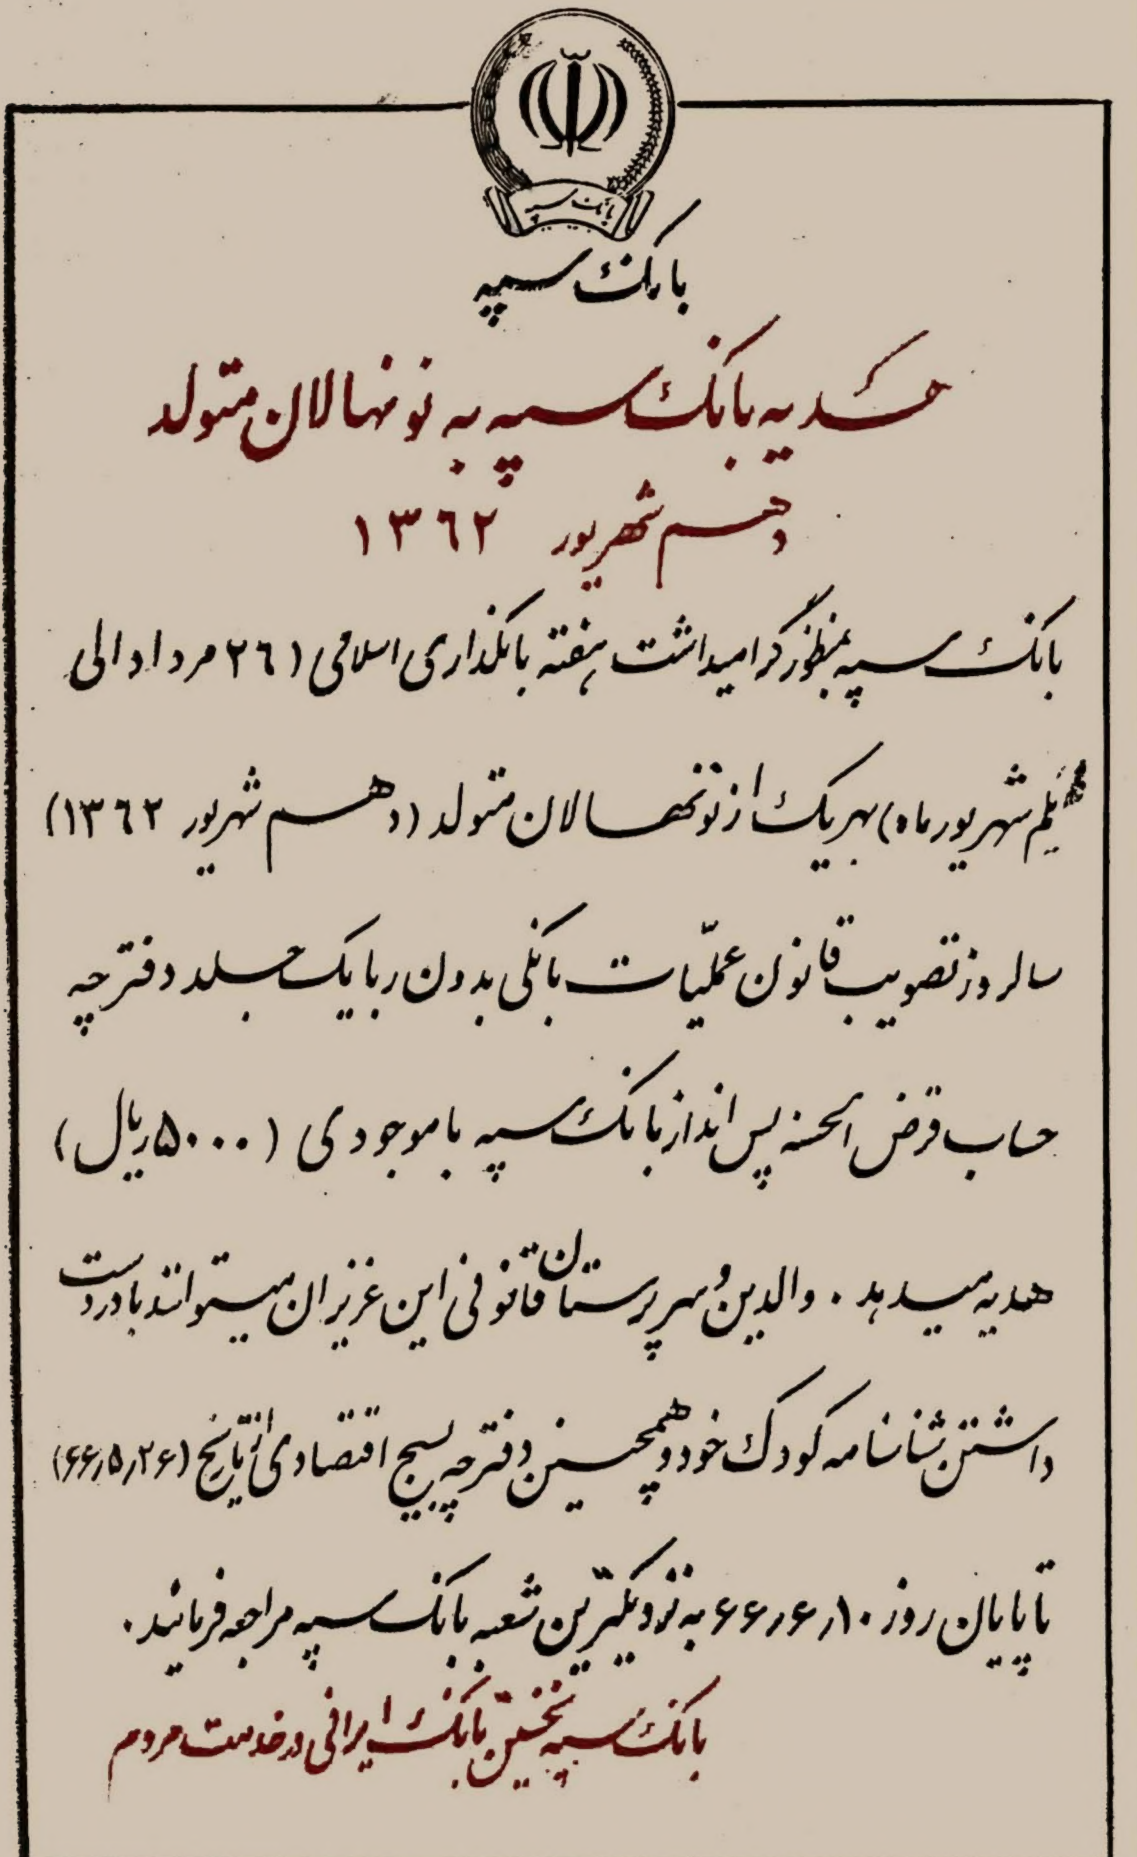 بانک سپه
بانک سپه
هدیه بانک سپه به نونهالان متولد
دهم شهریور ۱۳۶۲
بانک سپه بمنظور گرامیداشت هفته بانکداری اسلامی (۲۶ مرداد الی
یکم شهریور ماه) بهر یک از نونهالان متولد (دهم شهریور ۱۳۶۲)
سالروز تصویب قانون عملیّات بانکی بدون ربا یک جلد دفترچه
حساب قرض الحسنه پس انداز بانک سپه با موجودی (۵۰۰۰ ریال)
هدیه میدهد . والدین و سرپرستان قانونی این عزیزان میتوانند با در دست
داشتن شناسنامه کودک خود و همچنین دفترچه بسیج اقتصادی از تاریخ (۶۶٫۵٫۲۶)
تا پایان روز ۶۶٫۶٫۱۰ به نزدیکترین شعبه بانک سپه مراجعه فرمائید .
بانک سپه نخستین بانک ایرانی در خدمت مردم